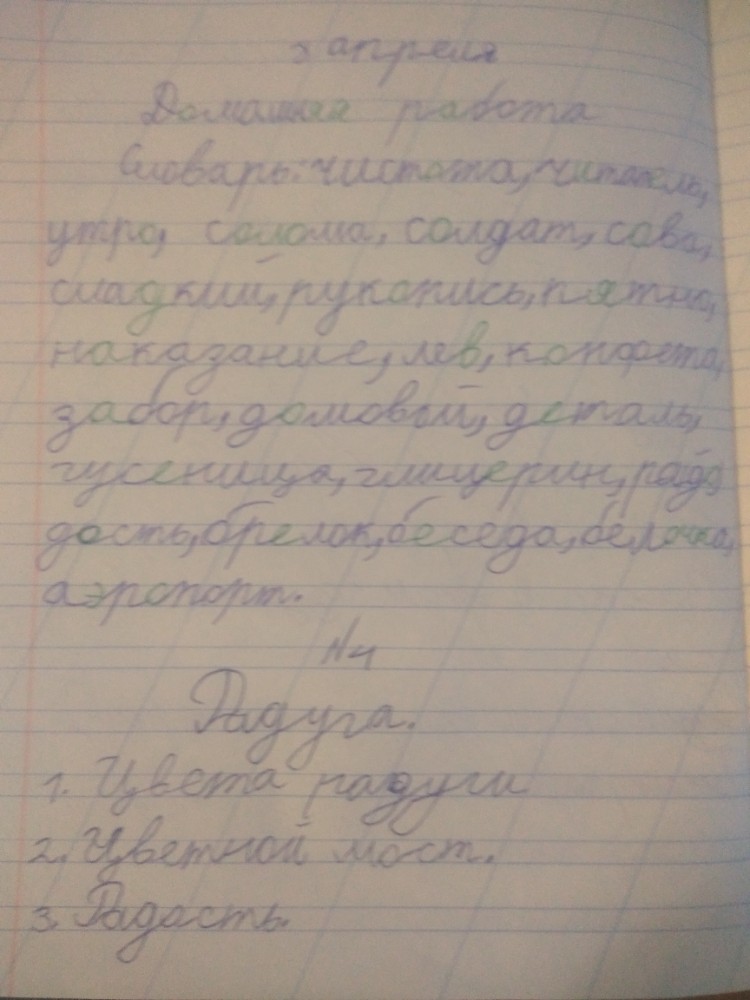 апреля
Домашняя работа
Словарь: чистота, читатель,
утро, солома, солдат, сова,
сладкий, рукопись, пятно,
наказание, лев, конфета,
забор, домовой, деталь,
гусеница, глицерин,
дость, брелок, беседа, белочка,
аэропорт.
№4
Радуга.
1. Цвета радуги
2. Цветной мост.
3. Радость.